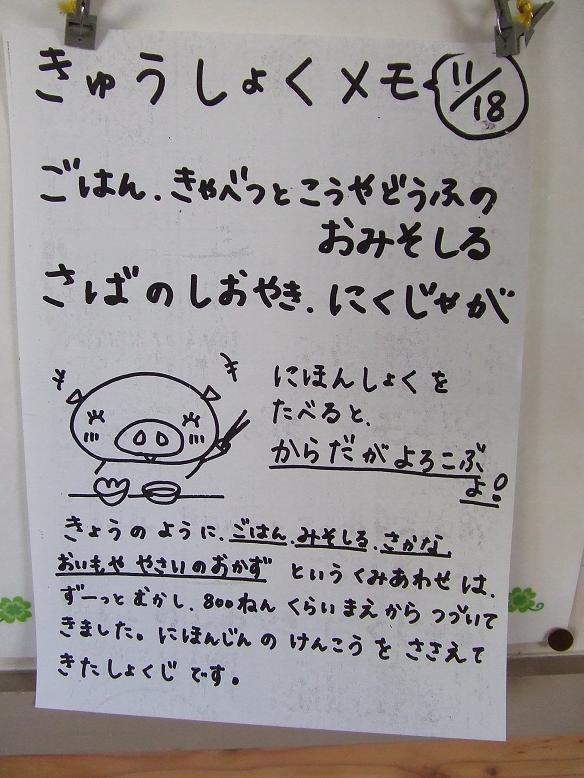 きゅうしょくメモ 11/18
ごはん、きゃべつとこうやどうふの
おみそしる
さばのしおやき、にくじゃが
にほんしょくを
たべると、
からだがよろこぶ
よ!
きょうのように、ごはん、みそしる、さかな、
おいもや やさいのおかず という くみあわせ は、
ずーっと むかし、800ねん くらい まえ から つづいて
きました。にほんじんの けんこう を ささえて
きた しょくじ です。